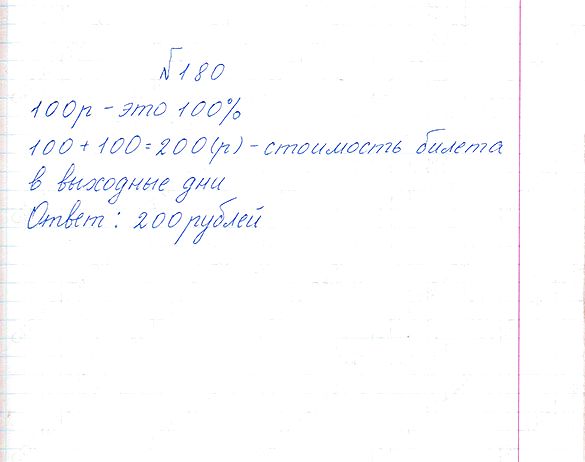 №180
100р - это 100%
100 + 100 = 200(р) - стоимость билета
в выходные дни
Ответ: 200 рублей